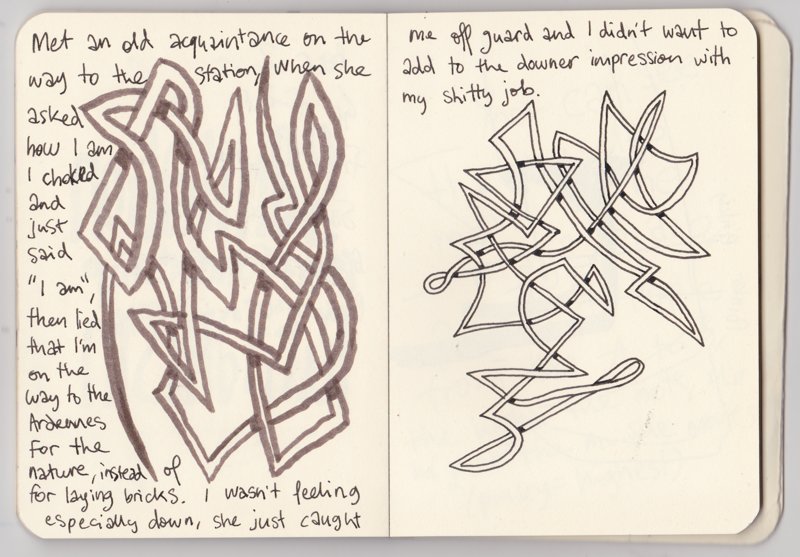 Met an old acquaintance on the
way to the station, when she
asked
how I am
I choked
and
just
said
"I am",
then lied
that I'm
on the
way to the
Ardennes
for the
nature, instead of
for laying bricks. I wasn't feeling
especially down, she just caught
me off guard and I didn't want to
add to the downer impression with
my shitty job.